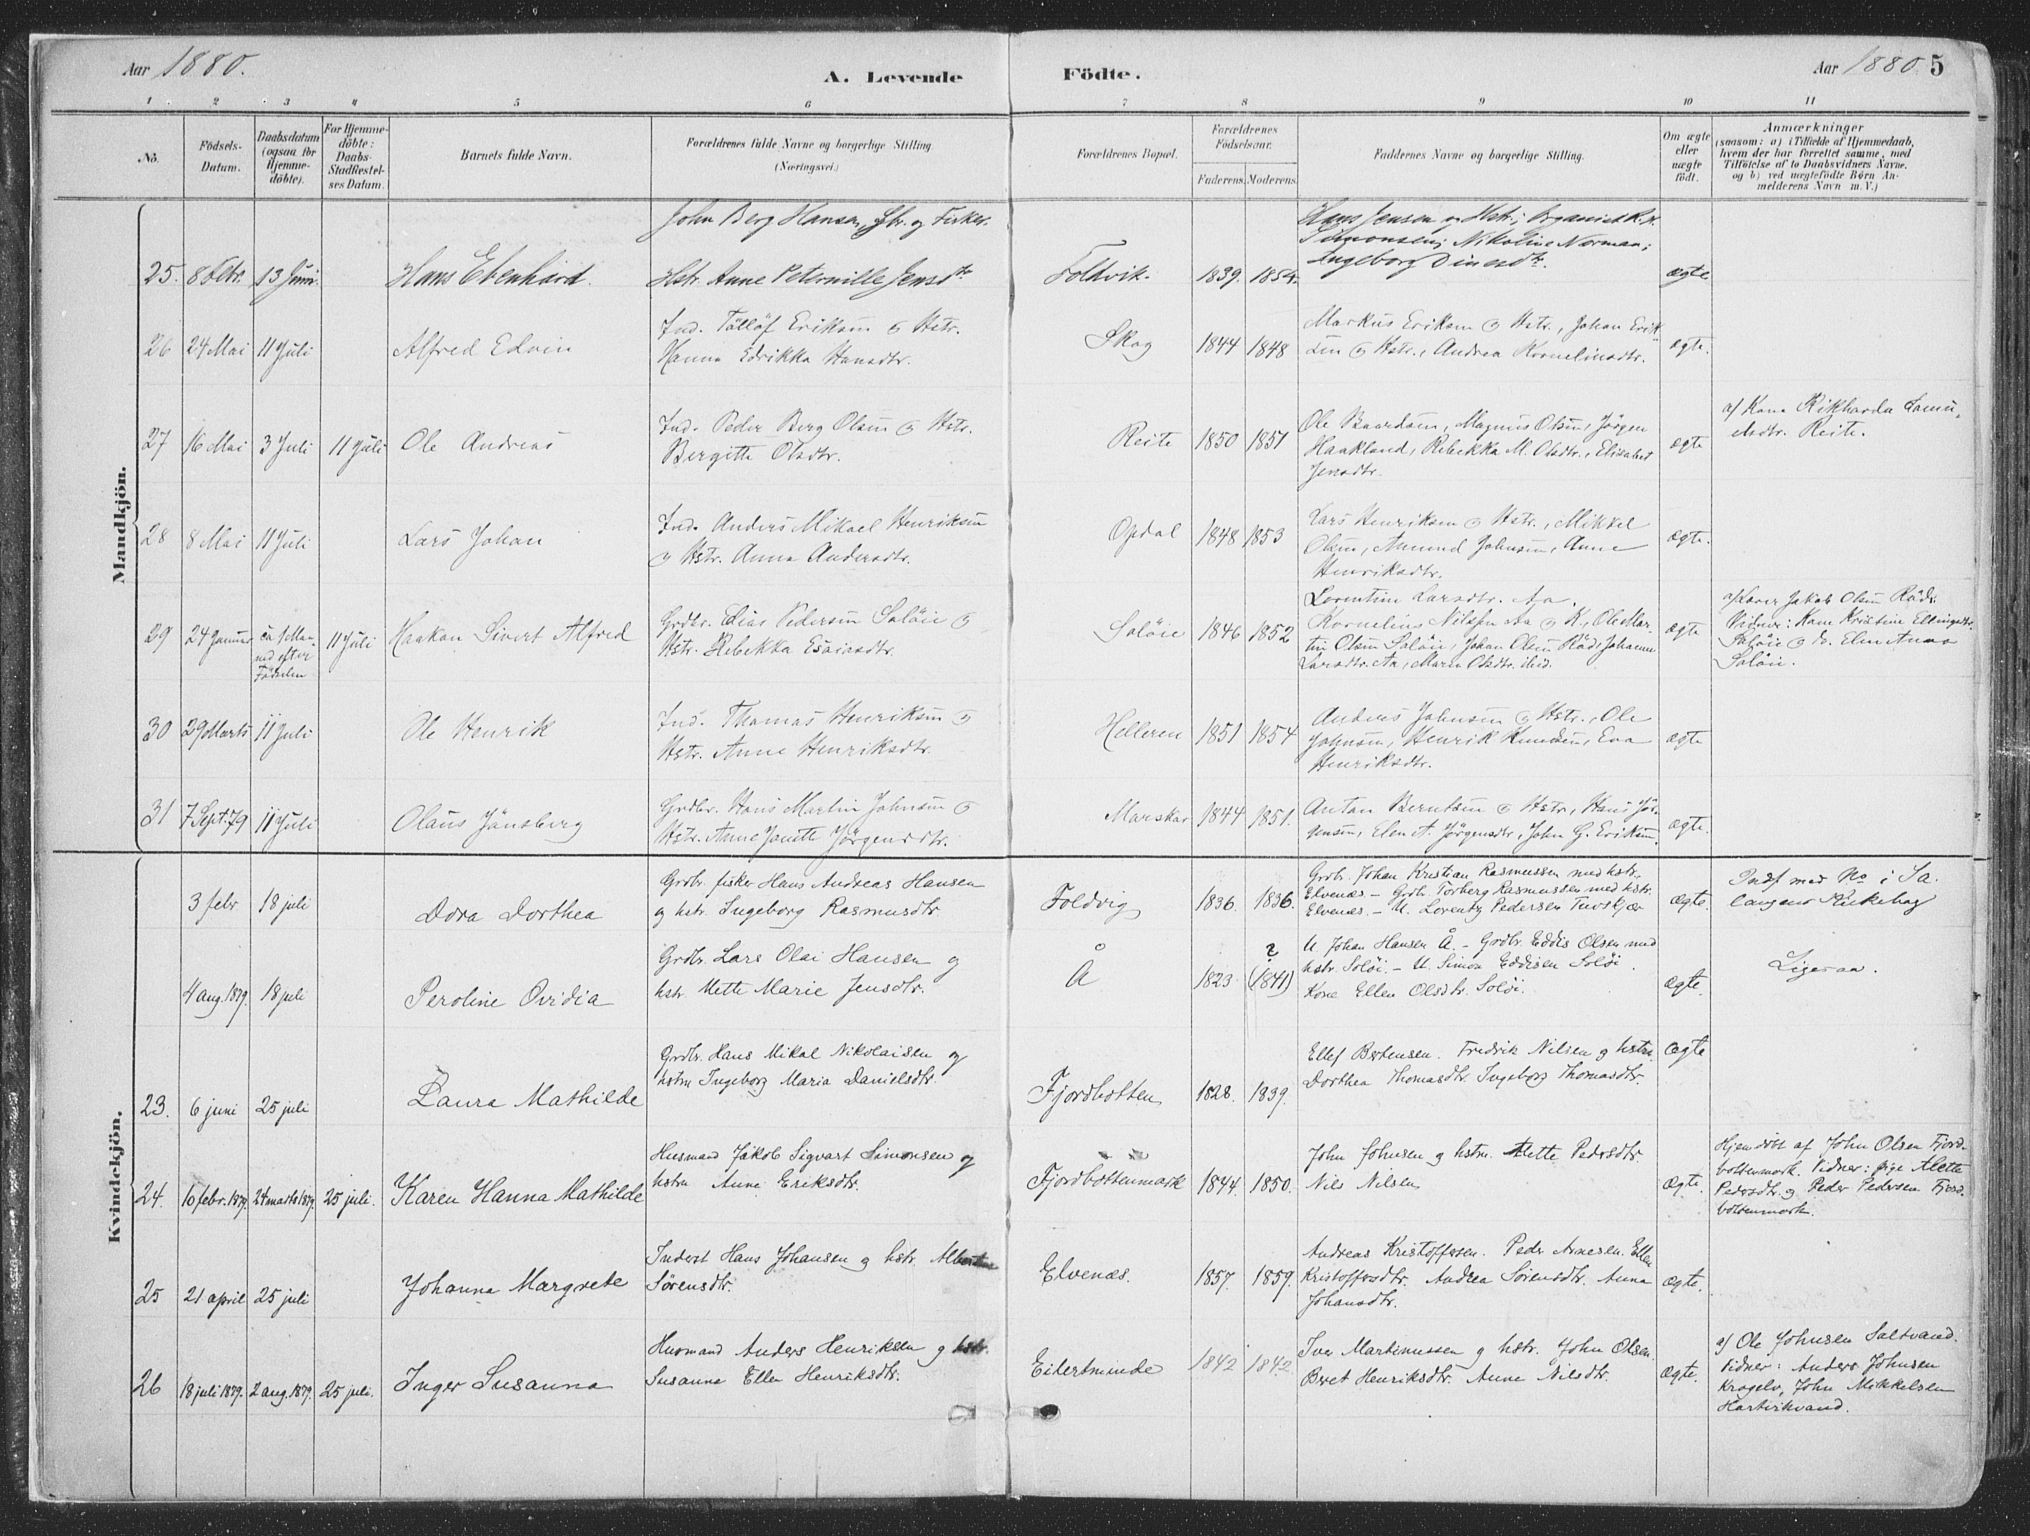 Aar 1880.
A. Levende Födte.
Aar 1880. 5
1 2 3 4 5 6 7 8 9 10 11
No.
Födsels-
Datum.
Daabsdatum
(ogsaa for
Hjemme-
döbte).
For Hjemme-
döbte:
Daabs-
Stadfæstel-
ses Datum.
Barnets fulde Navn.
Forældrenes fulde Navne og borgerlige Stilling
(Næringsvei.)
Forældrenes Bopæl.
Forældrenes
Födselsaar.
Faderens. Moderens.
Faddernes Navne og borgerlige Stilling.
Om ægte
eller
uægte
födt.
Anmærkninger
(saasom: a) i Tilfælde af Hjemmedaab,
hvem der har forrettet samme, med
Tilföielse af to Daabsvidners Navne,
og b) ved uægtefödte Børn An-
melderens Navn m. V.)
Mandkjön.
25. 8 Febr. 13 Juni. Hans Ebenhard.
John Berg Hansen, Gbr. og Fisker.
Hstr. Anne Petermille Jensdtr
Foldvik. 1839. 1854.
Hans Jensen og Hstr; Organist
Simonsen; Nikoline Norman;
Ingeborg Dinesdtr.
ægte
26 24 Mai 11 Juli Alfred Edvin
Ind. Tölløf Eriksen og Hstr.
Hanna Edrikka Hansdtr.
Skog 1844 1848
Markus Eriksen og Hstr., Johan Erik-
sen og Hstr., Andrea Kornelinsdtr.
ægte.
27 16 Mai 3 Juli 11 Juli Ole Andreas
Ind. Peder Berg Olsen og Hstr.
Bergitte Olsdtr.
Reite 1850 1851
Ole Baardsen, Magnus Olsen, Jörgen
Haakland, Rebekka M. Olsdtr., Elisabet
Jensdtr.
ægte
a) Kone Rikharda Samu-
elsdtr. Reite.
28 8 Mai 11 Juli Lars Johan
Ind. Anders Mikael Henriksen
og Hstr. Anna Andersdtr.
Opdal 1848 1853
Lars Henriksen og Hstr., Mikkel
Olsen, Amund Johnsen, Anne
Henriksdtr.
ægte.
29 24 Januar ca 1 Maa-
ned efter
Fødselen
11 Juli Haakon Sivert Alfred
Grdbr. Elias Pedersen Soløie og
Hstr. Rebekka Esaiasdtr.
Soløie 1846 1852
Lorentine Larsdtr. Aa,
Kornelius Nilssen Aa og K., Ole Mar-
tin Olsen Soløie, Johan Olsen Röd, Johanna
Larsdtr. Aa, Maren Olsdtr. ibid.
ægte
a) Lærer Jakob Olsen Röd.
Vidner: Kone Kristine Ellingsdtr.
Soløie og Elen Anna
Soløie.
30 29 Marts 11 Juli Ole Henrik
Ind. Thomas Henriksen og
Hstr. Anne Henriksdtr.
Helleren 1851 1854
Anders Johnsen og Hstr., Ole
Johnsen, Henrik Knudsen, Eva
Henriksdtr.
ægte
31 7 Sept. 79 11 Juli Olaus Jönsberg
Grdbr. Hans Martin Johnsen og
Hstr. Anne Jonette Jörgensdtr.
Marskar 1844 1851.
Anton Berntsen og Hstr, Hans Jör-
gensen, Elen A. Jörgensdtr, John G. Eriksen.
ægte.
Kvindekjön.
3 febr 18 juli Dora Dorthea
Grdbr. fisker Hans Andreas Hansen
og hstr. Ingeborg Rasmusdtr
Foldvig 1836. 1836.
Grdb. Johan Kristian Rasmussen med hstr.
Elvenæs – Grdb. Torberg Rasmussen med hstr.
Elvenæs. – U. Lorentz Pedersen Tuvskjær
ægte.
Indf med No i Sa-
langens Kirkebog
4 aug. 1879. 18 juli Peroline Ovidia
Grdbr. Lars Olai Hansen og
hstr. Mette Marie Jensdtr.
Å
Å 1823. ? (1841)
U. Johan Hansen Å. – Grdbr. Eddis Olsen med
hstr. Soløi. – U. Simon Eddisen Soløi.
Kone Ellen Olsdtr. Soløi.
ægte.
Ligesaa.
23. 6 juni 25 juli Laura Mathilde
Grdbr. Hans Mikal Nikolaisen og
hstru Ingeborg Maria Danielsdtr.
Fjordbotten 1828. 1839.
Ellef Bertensen. Fredrik Nilsen og hstru
Dorthea Thomasdtr. Ingeborg Thomasdtr.
ægte
24. 10 febr. 1879. 24 marts 1879. 25 juli. Karen Hanna Mathilde
Husmand Jakob Sigvart Simonsen og
hstru Anne Eriksdtr.
Fjordbottenmark 1844. 1850.
John Johnsen og hstru. Alette Pedersdtr.
Nils Nilsen
ægte.
Hjemdöbt af John Olsen Fjord-
bottenmark. Vidner: pige Alette
Pedersdtr. og Peder Pedersen Fjord-
bottenmark.
25 21 april 25 juli Johanna Margrete
Inderst Hans Johansen og hstr. Albertine
Sørensdtr.
Elvenæs. 1857. 1859.
Andreas Kristoffersen. Peder Arnesen. Ellen
Kristoffersdtr. Andrea Sørensdtr. Anna
Johansdtr.
ægte.
26 18 juli 1879. 2 aug. 1879. 25 juli. Inger Susanna
Husmand Anders Henriksen og hstr.
Susanna Ellen Henriksdtr.
Eidertminde 1842 1842
Iver Martinussen og hstr. John Olsen.
Beret Henriksdtr. Anne Nilsdtr.
ægte.
a) Ole Johnsen Saltvand.
Vidner: Anders Johnsen
Kragelv, John Mikkelsen
Hartvikvand.